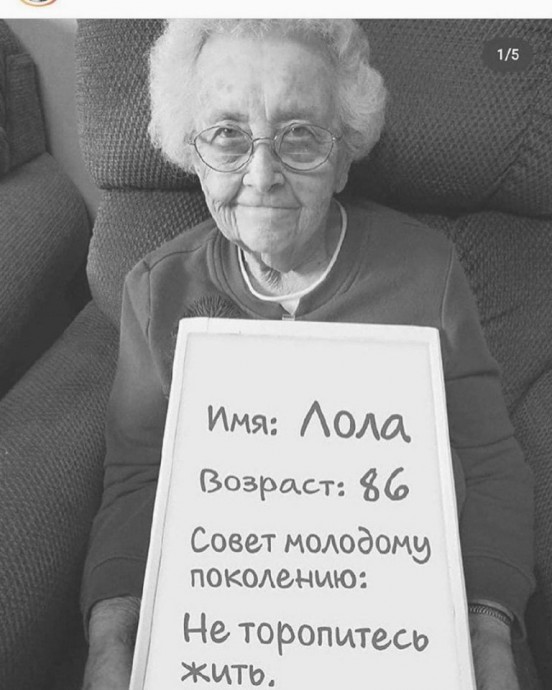 1/5
Имя: Лола
Возраст: 86
Совет молодому
поколению:
Не торопитесь
жить.